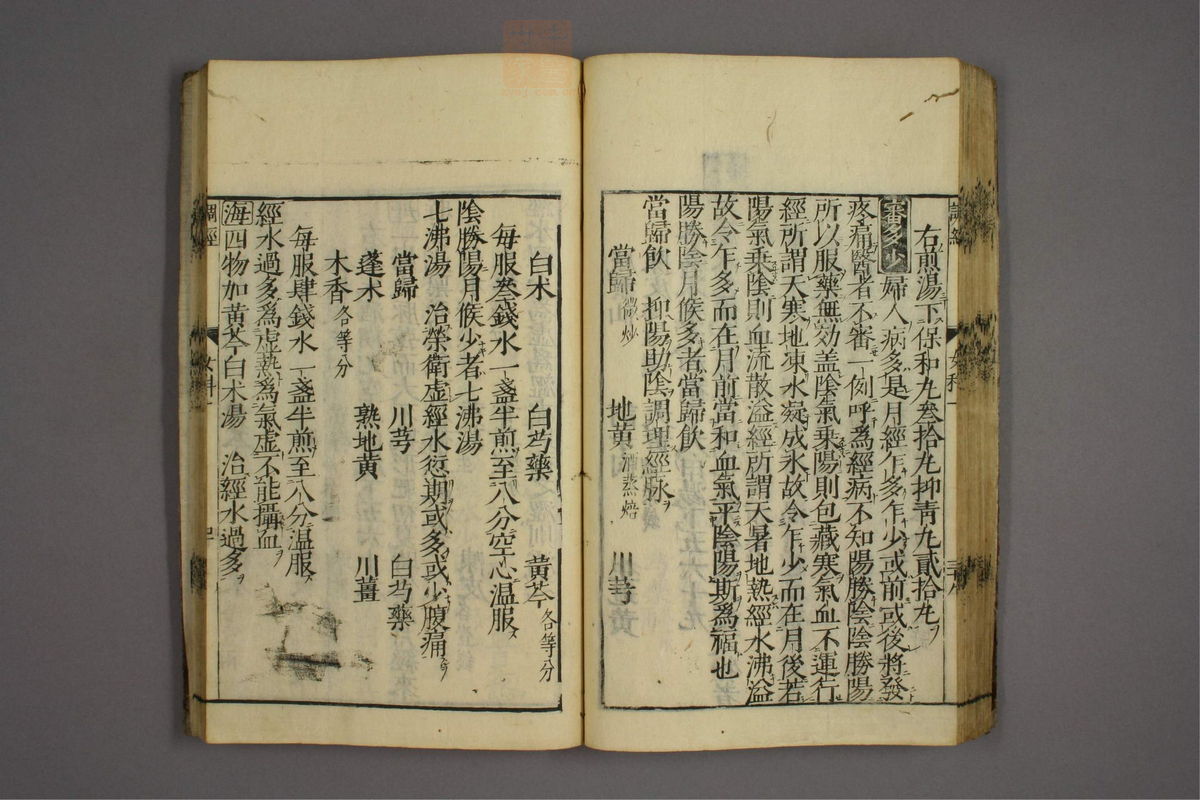 右煎湯下保和丸叄拾丸抑青丸貳拾丸
審多少 婦人病多是月經乍多乍少或前或後將發
疼痛醫者不審一例呼爲經病不知陽勝陰陰勝陽
所以服藥無効盖陰氣乘陽則包藏寒氣血不運行
經所謂天寒地凍水凝成氷故令乍少而在月後若
陽氣乘陰則血流散溢經所謂天暑地熱經水沸溢
故令乍多而在月前當和血氣平陰陽斯爲福也
陽勝陰月候多者當歸飲
當歸飲 抑陽助陰調理經脉
當歸微炒 地黃酒蒸焙 川芎
白朮 白芍藥 黃芩各等分
每服叄錢水一盞半煎至八分空心温服
陰勝陽月候少者七沸湯
七沸湯 治榮衛虛經水愆期或多或少腹痛
當歸 川芎 白芍藥
蓬朮 熟地黃 川薑
木香各等分
每服肆錢水一盞半煎至八分温服
經水過多爲虛熱爲氣虛不能攝血
海 四物加黃芩白朮湯 治經水過多
調經 女科